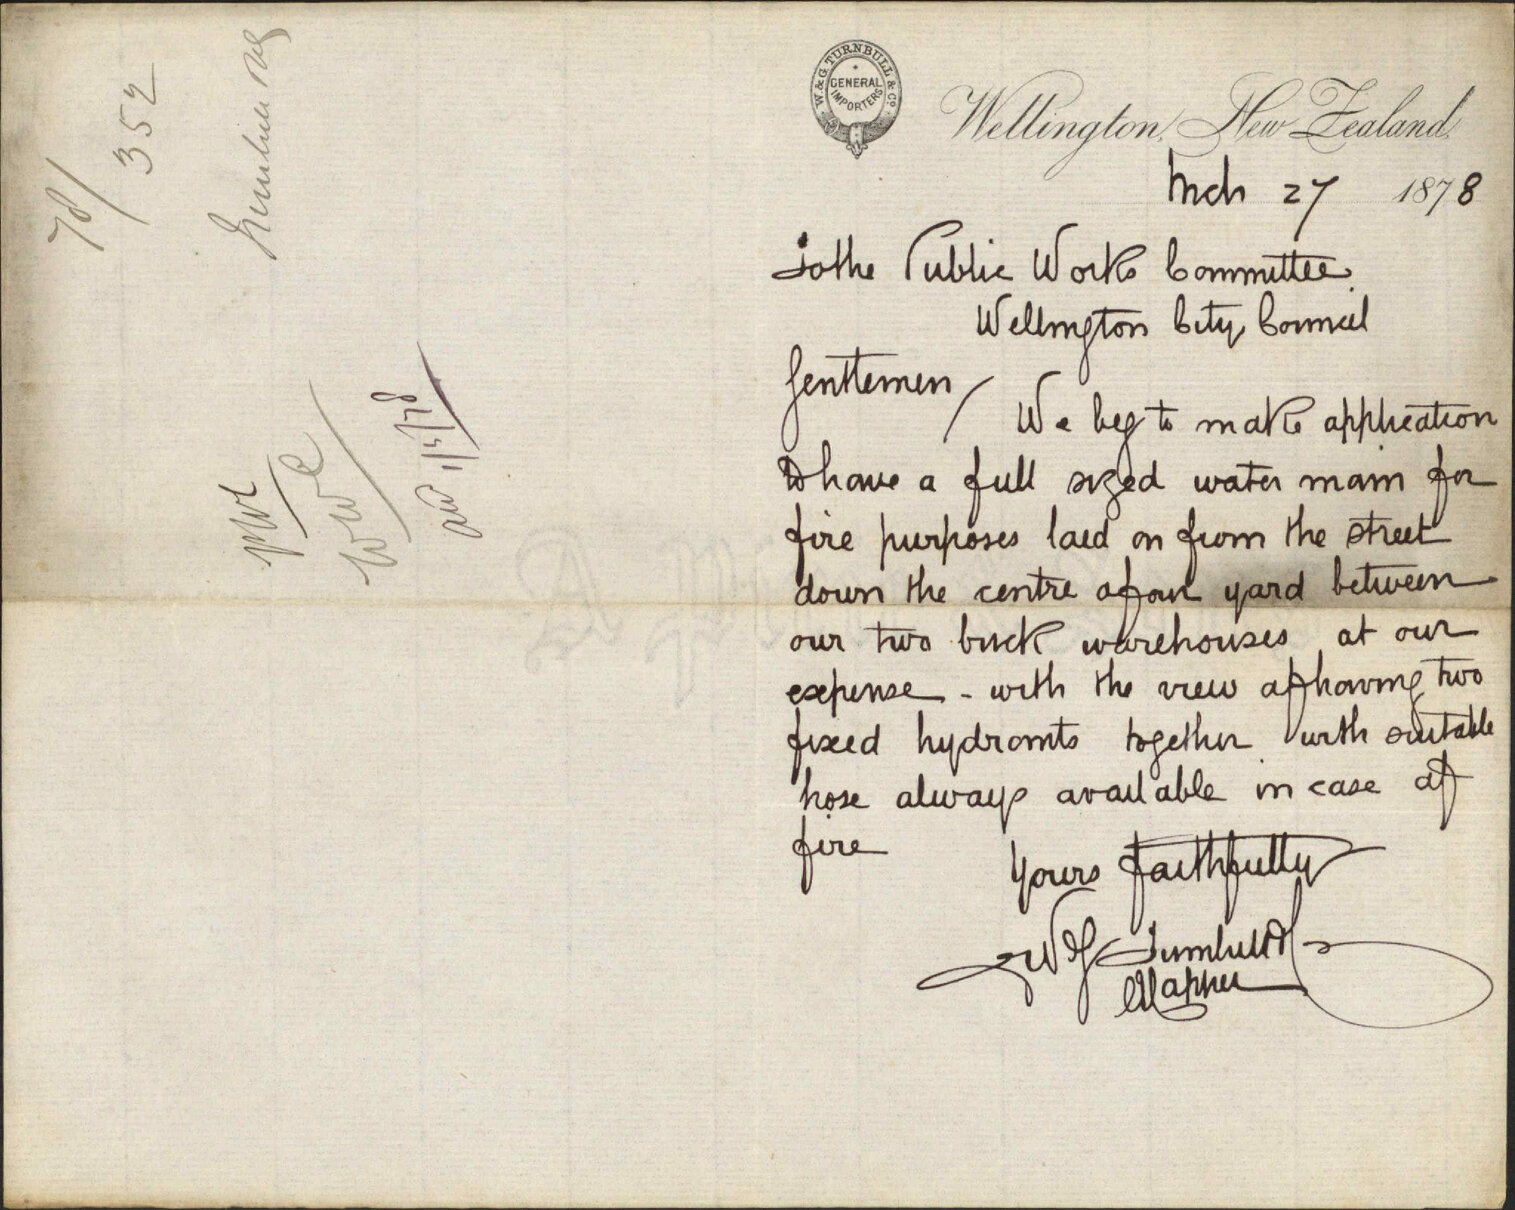 78/
352
W. & G. TURNBULL & Co.
GENERAL
IMPORTERS
Wellington, New Zealand.
Mch 27 1878
To the Public Works Committee.
Wellington City Council
Gentlemen/
We beg to make application
to have a full sized water main for
fire purposes laed on from the street
down the centre of our yard between
our two brick warehouses at our
expense - with the view of having two
fixed hydrants together with suitable
hose always available in case of
fire
Yours faithfully
W & G Turnbull & Co